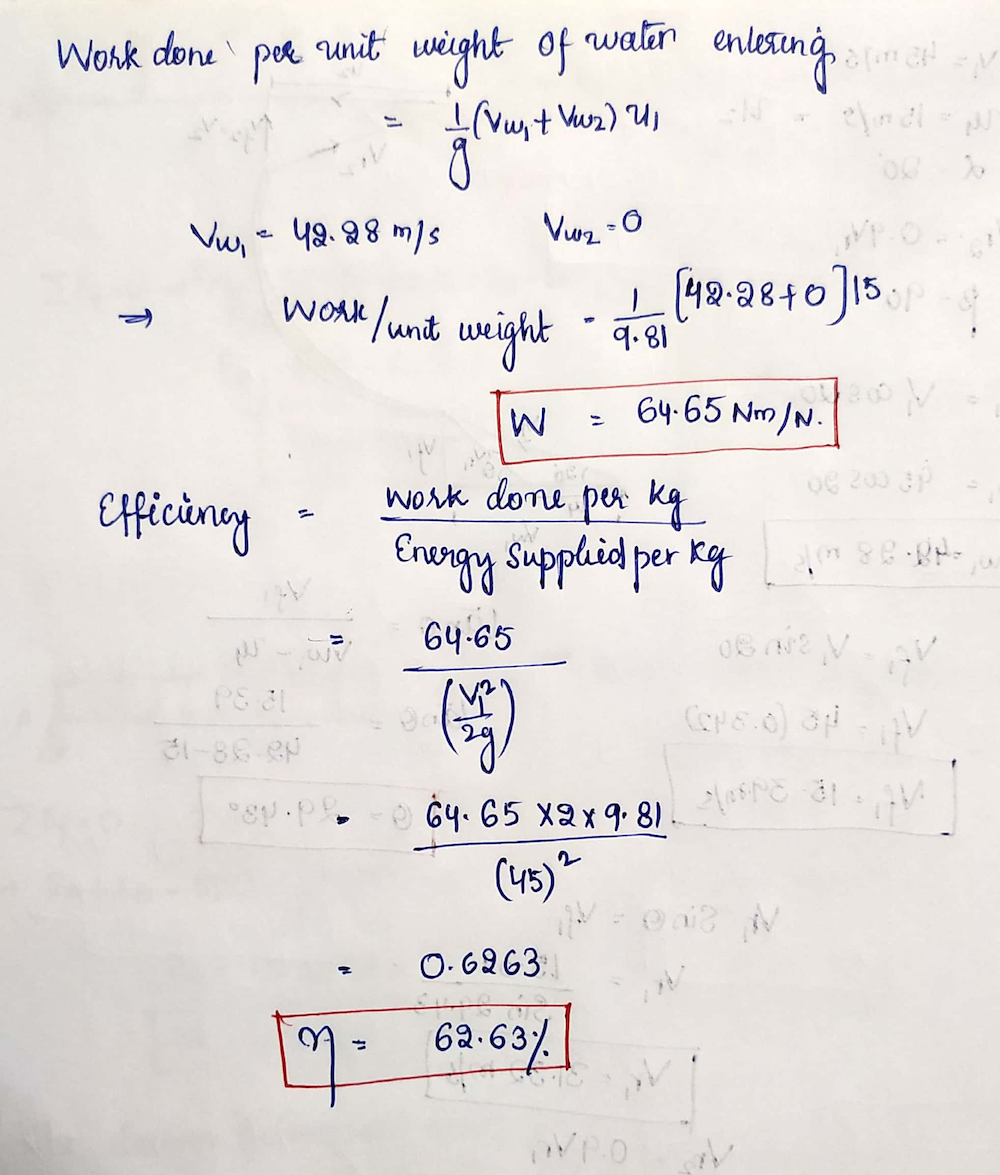 Work done per unit weight of water entering
= 1/g (Vw₁ + Vw₂) u₁
Vw₁ = 42.28 m/s Vw₂ = 0
⇒ Work/unit weight = 1/9.81 [42.28 + 0] 15
W = 64.65 Nm/N.
Efficiency = Work done per kg / Energy supplied per kg
= 64.65 / (V₁²/2g)
= 64.65 x 2 x 9.81 / (45)²
= 0.6263
η = 62.63%